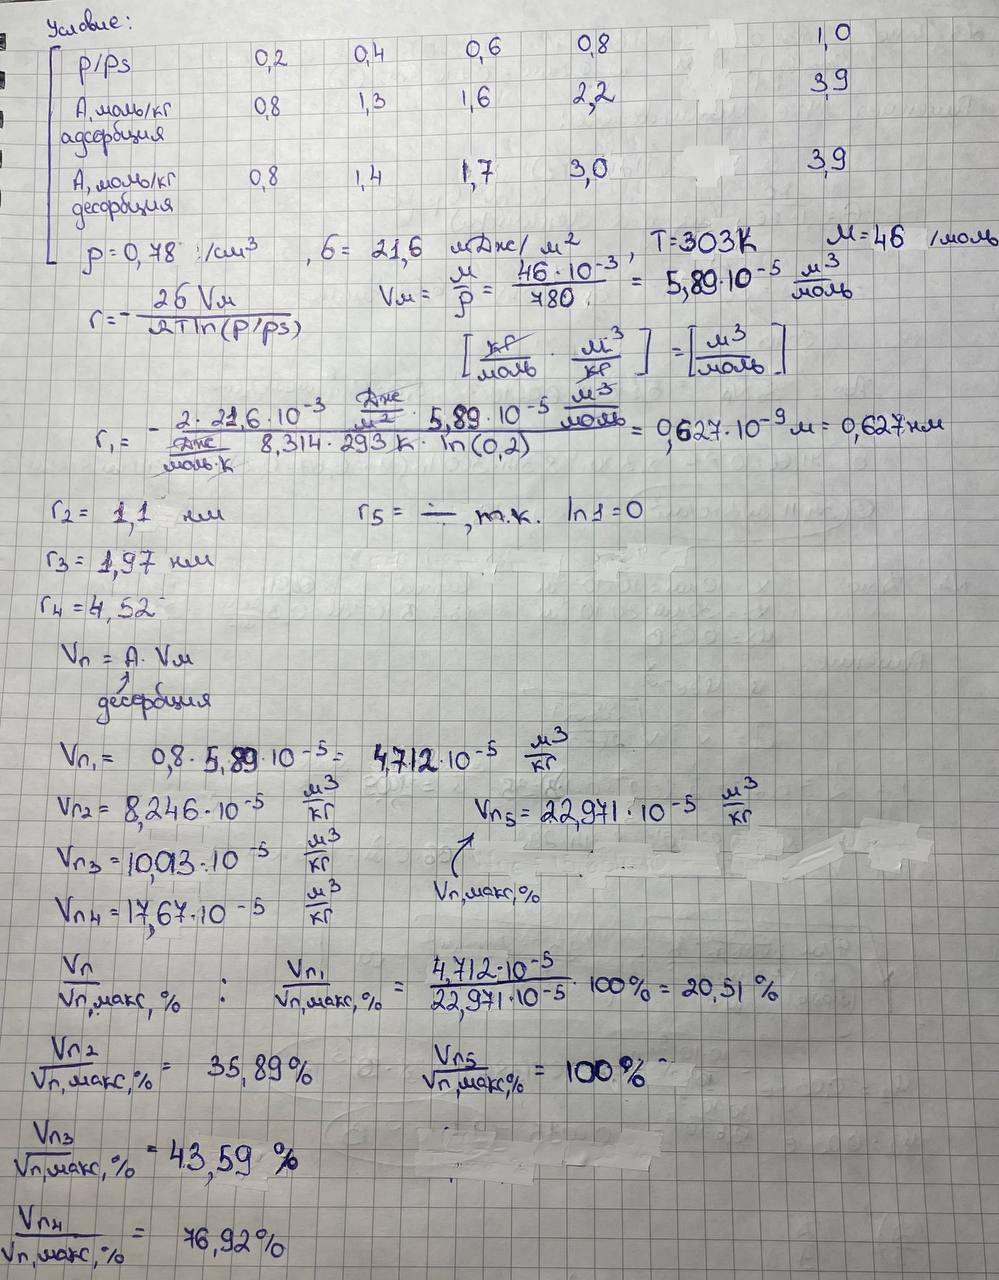 Условие:
p/ps 0,2 0,4 0,6 0,8 1,0
A, моль/кг 0,8 1,3 1,6 2,2 3,9
адсорбция
A, моль/кг 0,8 1,4 1,7 3,0 3,9
десорбция
ρ=0,78 /см³ , б= 21,6 мДж/м² , T=303К М=46 /моль
r=- 2б Vм / RT ln(p/ps) Vм= М/ρ = 46·10⁻³/780 = 5,89·10⁻⁵ м³/моль
[кг/моль · м³/кг] = [м³/моль]
r₁= - 2·21,6·10⁻³ Дж/м² · 5,89·10⁻⁵ м³/моль / Дж/моль·К 8,314·293К·ln(0,2) = 0,627·10⁻⁹м = 0,627нм
r₂= 1,1 нм r₅= —, т.к. ln1=0
r₃= 1,97 нм
r₄=4,52
Vп = A·Vм
десорбция
Vп₁= 0,8·5,89·10⁻⁵= 4,712·10⁻⁵ м³/кг
Vп₂= 8,246·10⁻⁵ м³/кг Vп₅=22,971·10⁻⁵ м³/кг
Vп₃=10,013·10⁻⁵ м³/кг
Vп,макс,%
Vп₄=17,67·10⁻⁵ м³/кг
Vп/Vп,макс,% : Vп₁/Vп,макс,% = 4,712·10⁻⁵/22,971·10⁻⁵ · 100% = 20,51 %
Vп₂/Vп,макс,% = 35,89% Vп₅/Vп,макс,% = 100%
Vп₃/Vп,макс,% = 43,59 %
Vп₄/Vп,макс,% = 76,92%